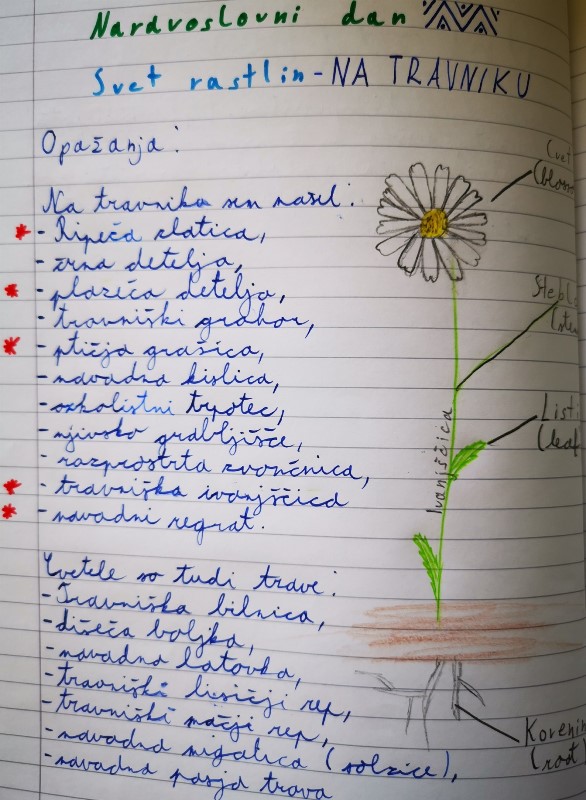 Nardvoslovni dan
Svet rastlin - NA TRAVNIKU
Opažanja:
Na travniku sem našel:
- Ripeča zlatica,
- črna detelja,
- plazeča detelja,
- travniški grahor,
- ptičja grašica,
- navadna kislica,
- ozkolistni trpotec,
- njivsko grabljišče,
- razprostrta zvončnica,
- travniška ivanjščica
- navadni regrat.
Cvetele so tudi trave:
- Travniška bilnica,
- dišeča boljka,
- navadna latovka,
- travniški lisičji rep,
- travniški mačji rep,
- navadna migalica (solzice),
- navadna pasja trava
Cvet
(bloss
Stebl
(ste
Ivanjščica
Listi
(leaf
Korenin
(root